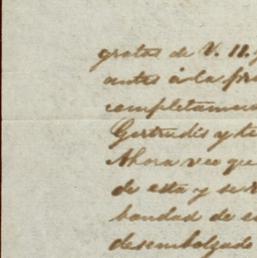 gratas de V. 11.
antes á la pri
completamen
Gertrudis y te
Ahora veo que
de esta y se
bondad de e
desembolzado